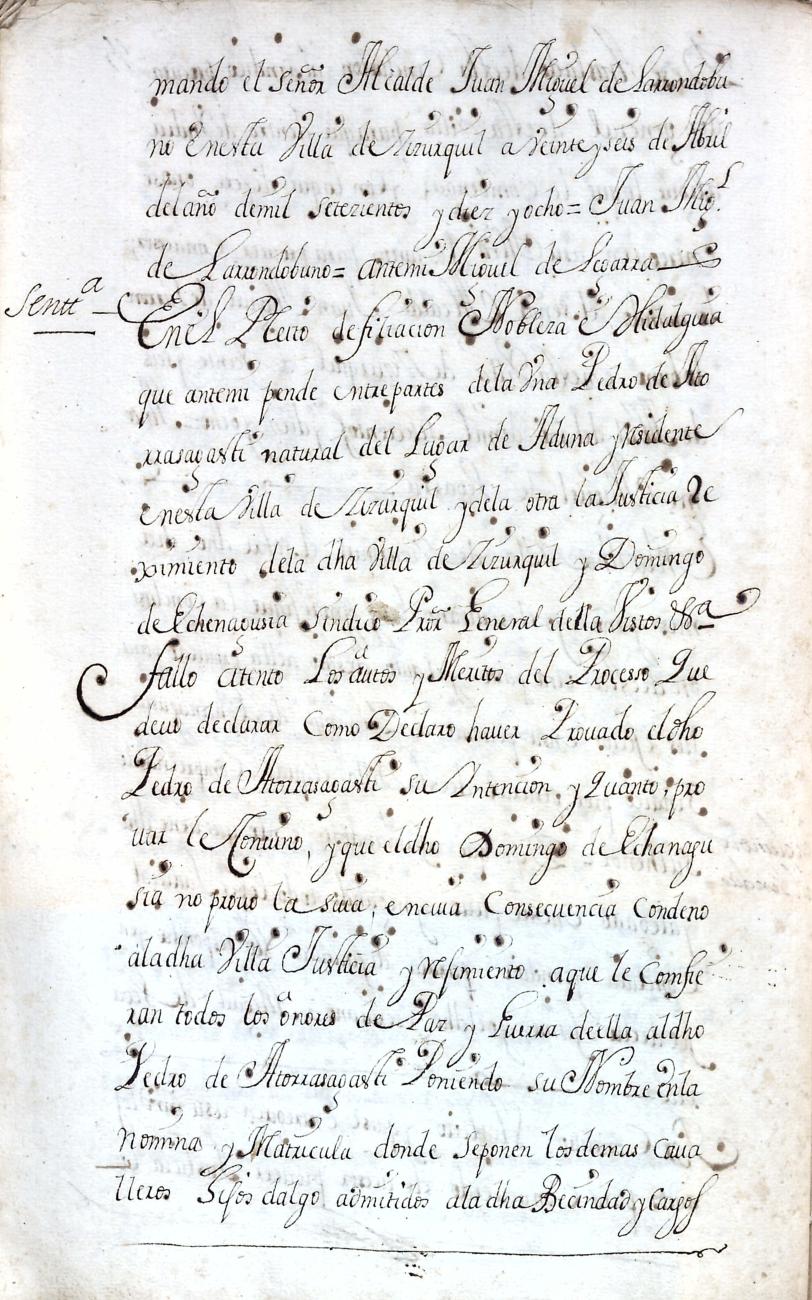 mando el señor Alcalde Juan Miguel de Larrondobu
no enesta Villa de Vizurquil a Veinte y seis de Abril
del año demil setezientos y diez y ocho = Juan Migl
de Larrondobuno = antemi Miguel de Legarra
Senttª
En el Pleito de filiacion Nobleza e Hidalguia
que antemi pende entre partes dela Vna Pedro de Ato
rrasagasti natural del Lugar de Aduna y residente
enesta Villa de Vizurquil y dela otra la Justicia Re
ximiento dela dha Villa de Vizurquil y Domingo
de Echenagusia Sindico Pror General della Vistos &ª
fallo atento Los autos y Meritos del Processo Que
devo declarar Como Declaro haver Provado el dho
Pedro de Atorrasagasti su Yntencion, y Quanto, pro
uar le Conuino, y que el dho Domingo de Echanagu
sia no provo la suia, en cuia Consecuencia Condeno
ala dha Villa Justicia y Resimiento a que le Comfie
ran todos los onores de Paz y Guerra de ella al dho
Pedro de Atorrasagasti Poniendo su Nombre enla
nomina y Matricula donde se ponen los demas Caua
lleros hijos dalgo admitidos ala dha Becindad y Cargos